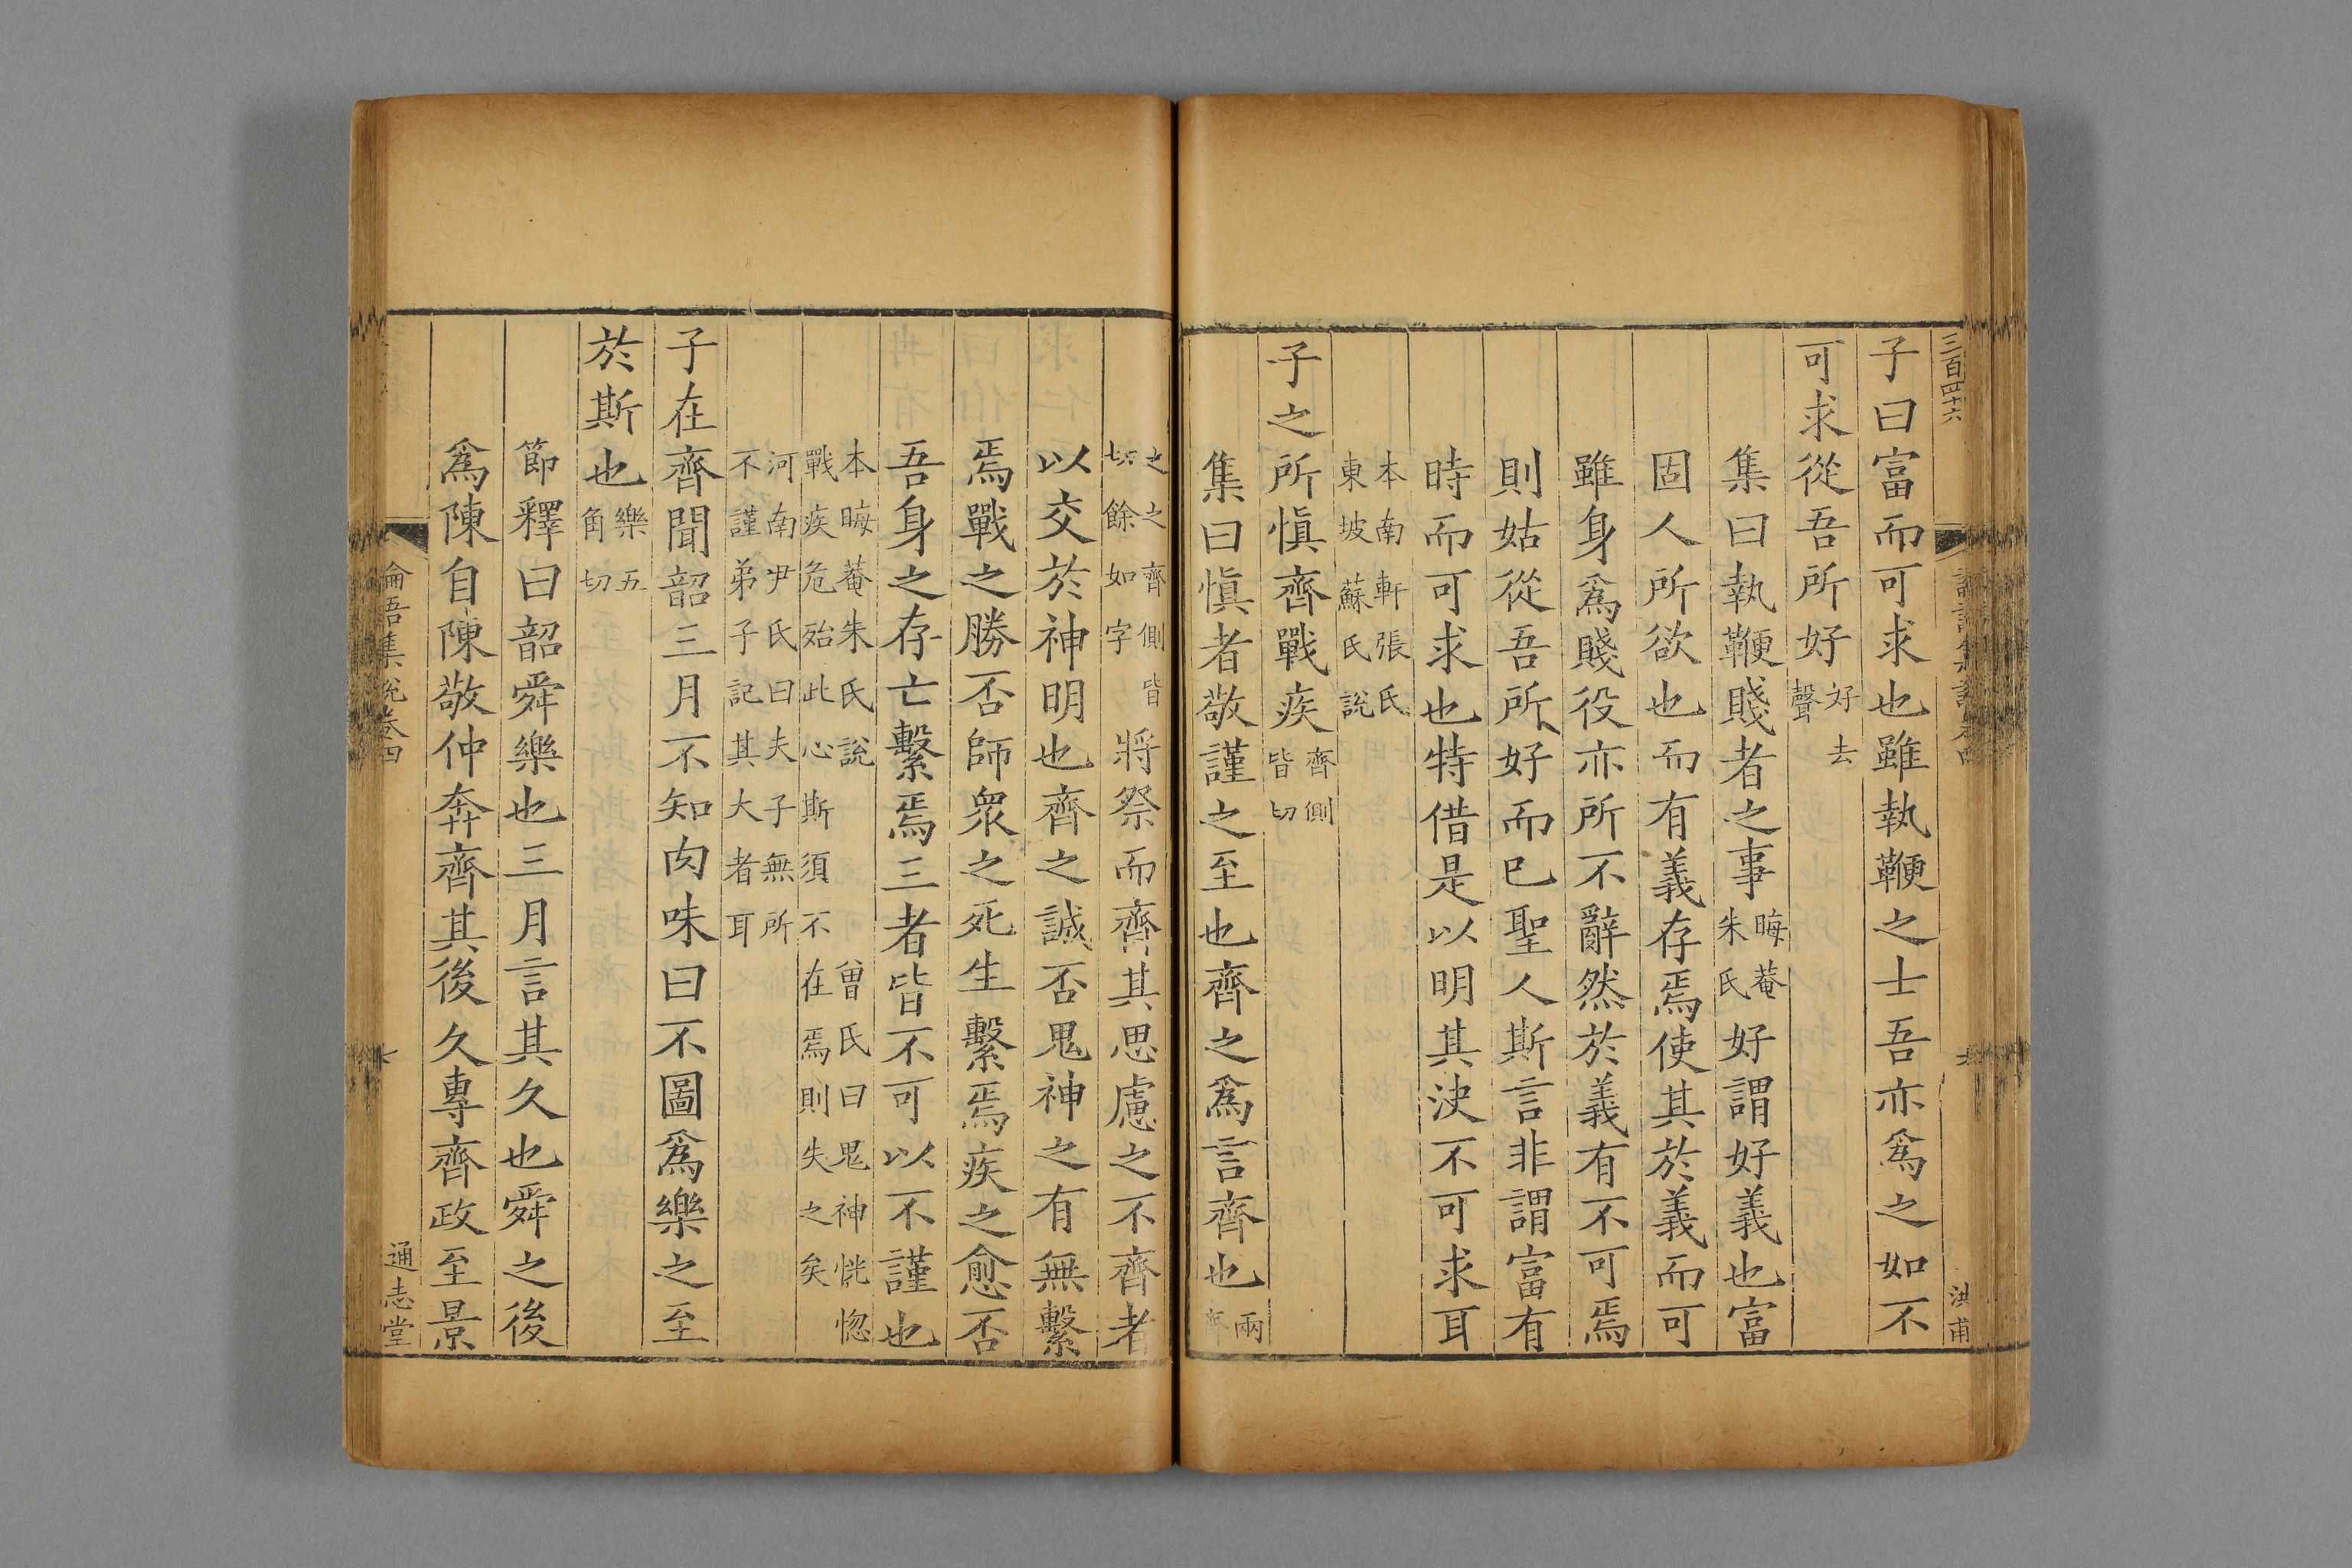 三百四十六
洪甫
子曰富而可求也雖執鞭之士吾亦爲之如不
可求從吾所好好去聲
集曰執鞭賤者之事晦菴朱氏好謂好義也富
固人所欲也而有義存焉使其於義而可
雖身爲賤役亦所不辭然於義有不可焉
則姑從吾所好而已聖人斯言非謂富有
時而可求也特借是以明其決不可求耳
本南軒張氏東坡蘇氏說
子之所愼齊戰疾齊側皆切
集曰愼者敬謹之至也齊之爲言齊也兩齊
之之齊側皆切餘如字將祭而齊其思慮之不齊者
以交於神明也齊之誠否鬼神之有無繫
焉戰之勝否師衆之死生繫焉疾之愈否
吾身之存亡繫焉三者皆不可以不謹也
本晦菴朱氏說曾氏曰鬼神恍惚戰疾危殆此心斯須不在焉則失之矣
河南尹氏曰夫子無所不謹弟子記其大者耳
子在齊聞韶三月不知肉味曰不圖爲樂之至
於斯也樂五角切
節釋曰韶舜樂也三月言其久也舜之後
爲陳自陳敬仲奔齊其後久專齊政至景
論語集說卷四
通志堂